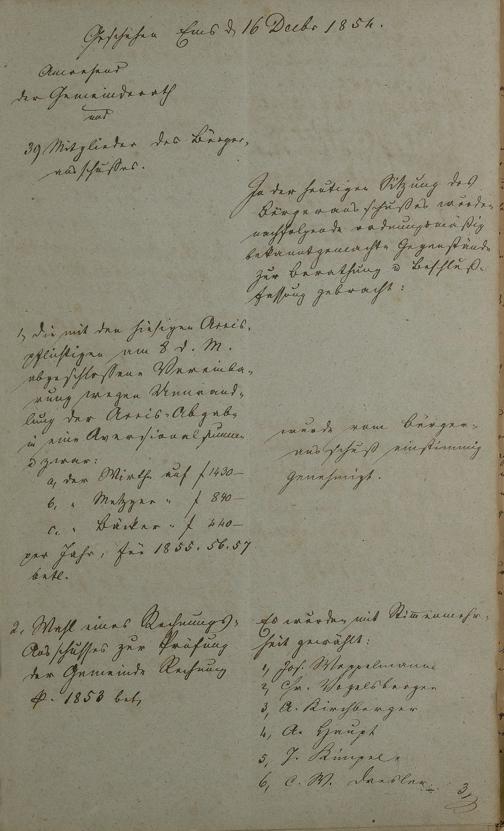 Geschehen Ems d 16 Decbr 1854.
Anwesend
der Gemeinderath
und
39 Mitglieder des Bürger-
ausschußes.
In der heutigen Sitzung des
Bürgerausschußes wurden
nachfolgende ordnungsmäßig
bekanntgemachte Gegenstände
zur Berathung u Beschluß-
fassung gebracht:
1, die mit den hiesigen Accis-
pflichtigen am 8 d. M.
abgeschlossene Vereinba-
rung wegen Umwand-
lung der Accis-Abgabe
in eine Aversionalsumme
u zwar:
a, der Wirthe auf f 1430–
b, " Metzger " f 890–
c, " Bäcker " f 440–
per Jahr, für 1855. 56. 57
betr.
wurde vom Bürger-
ausschuß einstimmig
genehmigt.
2, Wahl eines Rechnungs-
Ausschusses zur Prüfung
der Gemeinde Rechnung
p. 1853 betr,
Es wurden mit Stimmenmehr-
heit gewählt:
1, Jos. Weppelmann
2, Chr. Vogelsberger
3, A. Kirchberger
4, A. Haupt
5, J. Kümpel
6, C. W. Dresler
3,